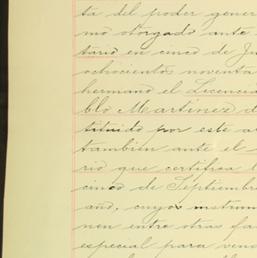 ta del poder gener
mo otorgado ante
tario en cinco de Ju
ochocientos noventa
hermano el Licencia
blo Martinez d
tituido por este a
también ante el
rio que certifica l
cinco de Septiembr
año, cuyos instrum
nen entre otras fa
especial para vend